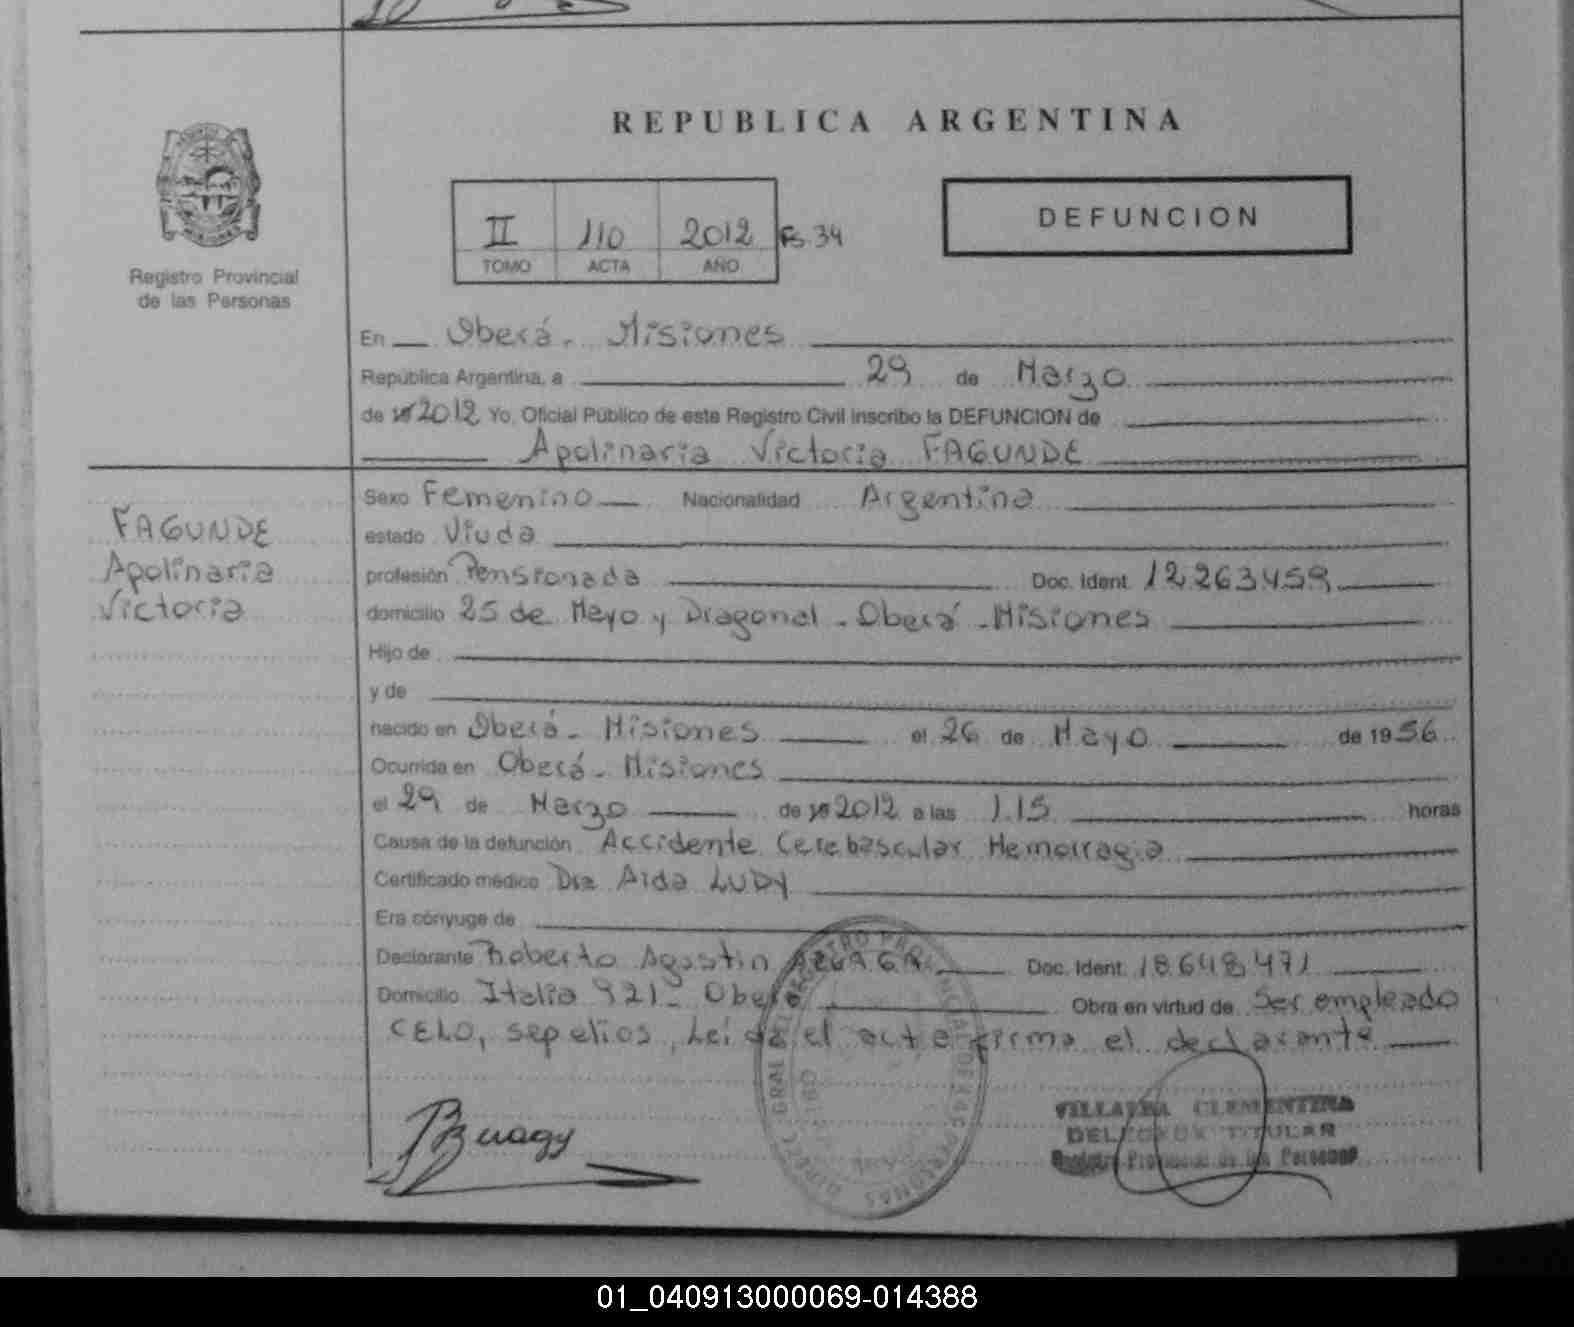 REPUBLICA ARGENTINA
Registro Provincial
de las Personas
II 110 2012 Fs. 34
TOMO ACTA AÑO
DEFUNCION
En Oberá - Misiones
República Argentina, a 29 de Marzo
de 2012 Yo, Oficial Público de este Registro Civil inscribo la DEFUNCION de
Apolinaria Victoria FAGUNDE
FAGUNDE
Apolinaria
Victoria
Sexo Femenino Nacionalidad Argentina
estado Viuda
profesión Pensionada Doc. Ident. 12.263.459
domicilio 25 de Mayo y Diagonal - Oberá - Misiones
Hijo de
y de
nacido en Oberá - Misiones el 26 de Mayo de 1956
Ocurrida en Oberá - Misiones
el 29 de Marzo de 2012 a las 1.15 horas
Causa de la defunción Accidente Cerebascular Hemorragia
Certificado médico Dra Aida LUDY
Era cónyuge de
Declarante Roberto Agostin Doc. Ident. 18.648.471
Domicilio Italia 921 - Oberá Obra en virtud de Ser empleado
CELO, sepelios, Leida el acta firma el declarante
VILLALBA CLEMENTINA
DELEGADA TITULAR
Registro Provincial de las Personas
01_040913000069-014388